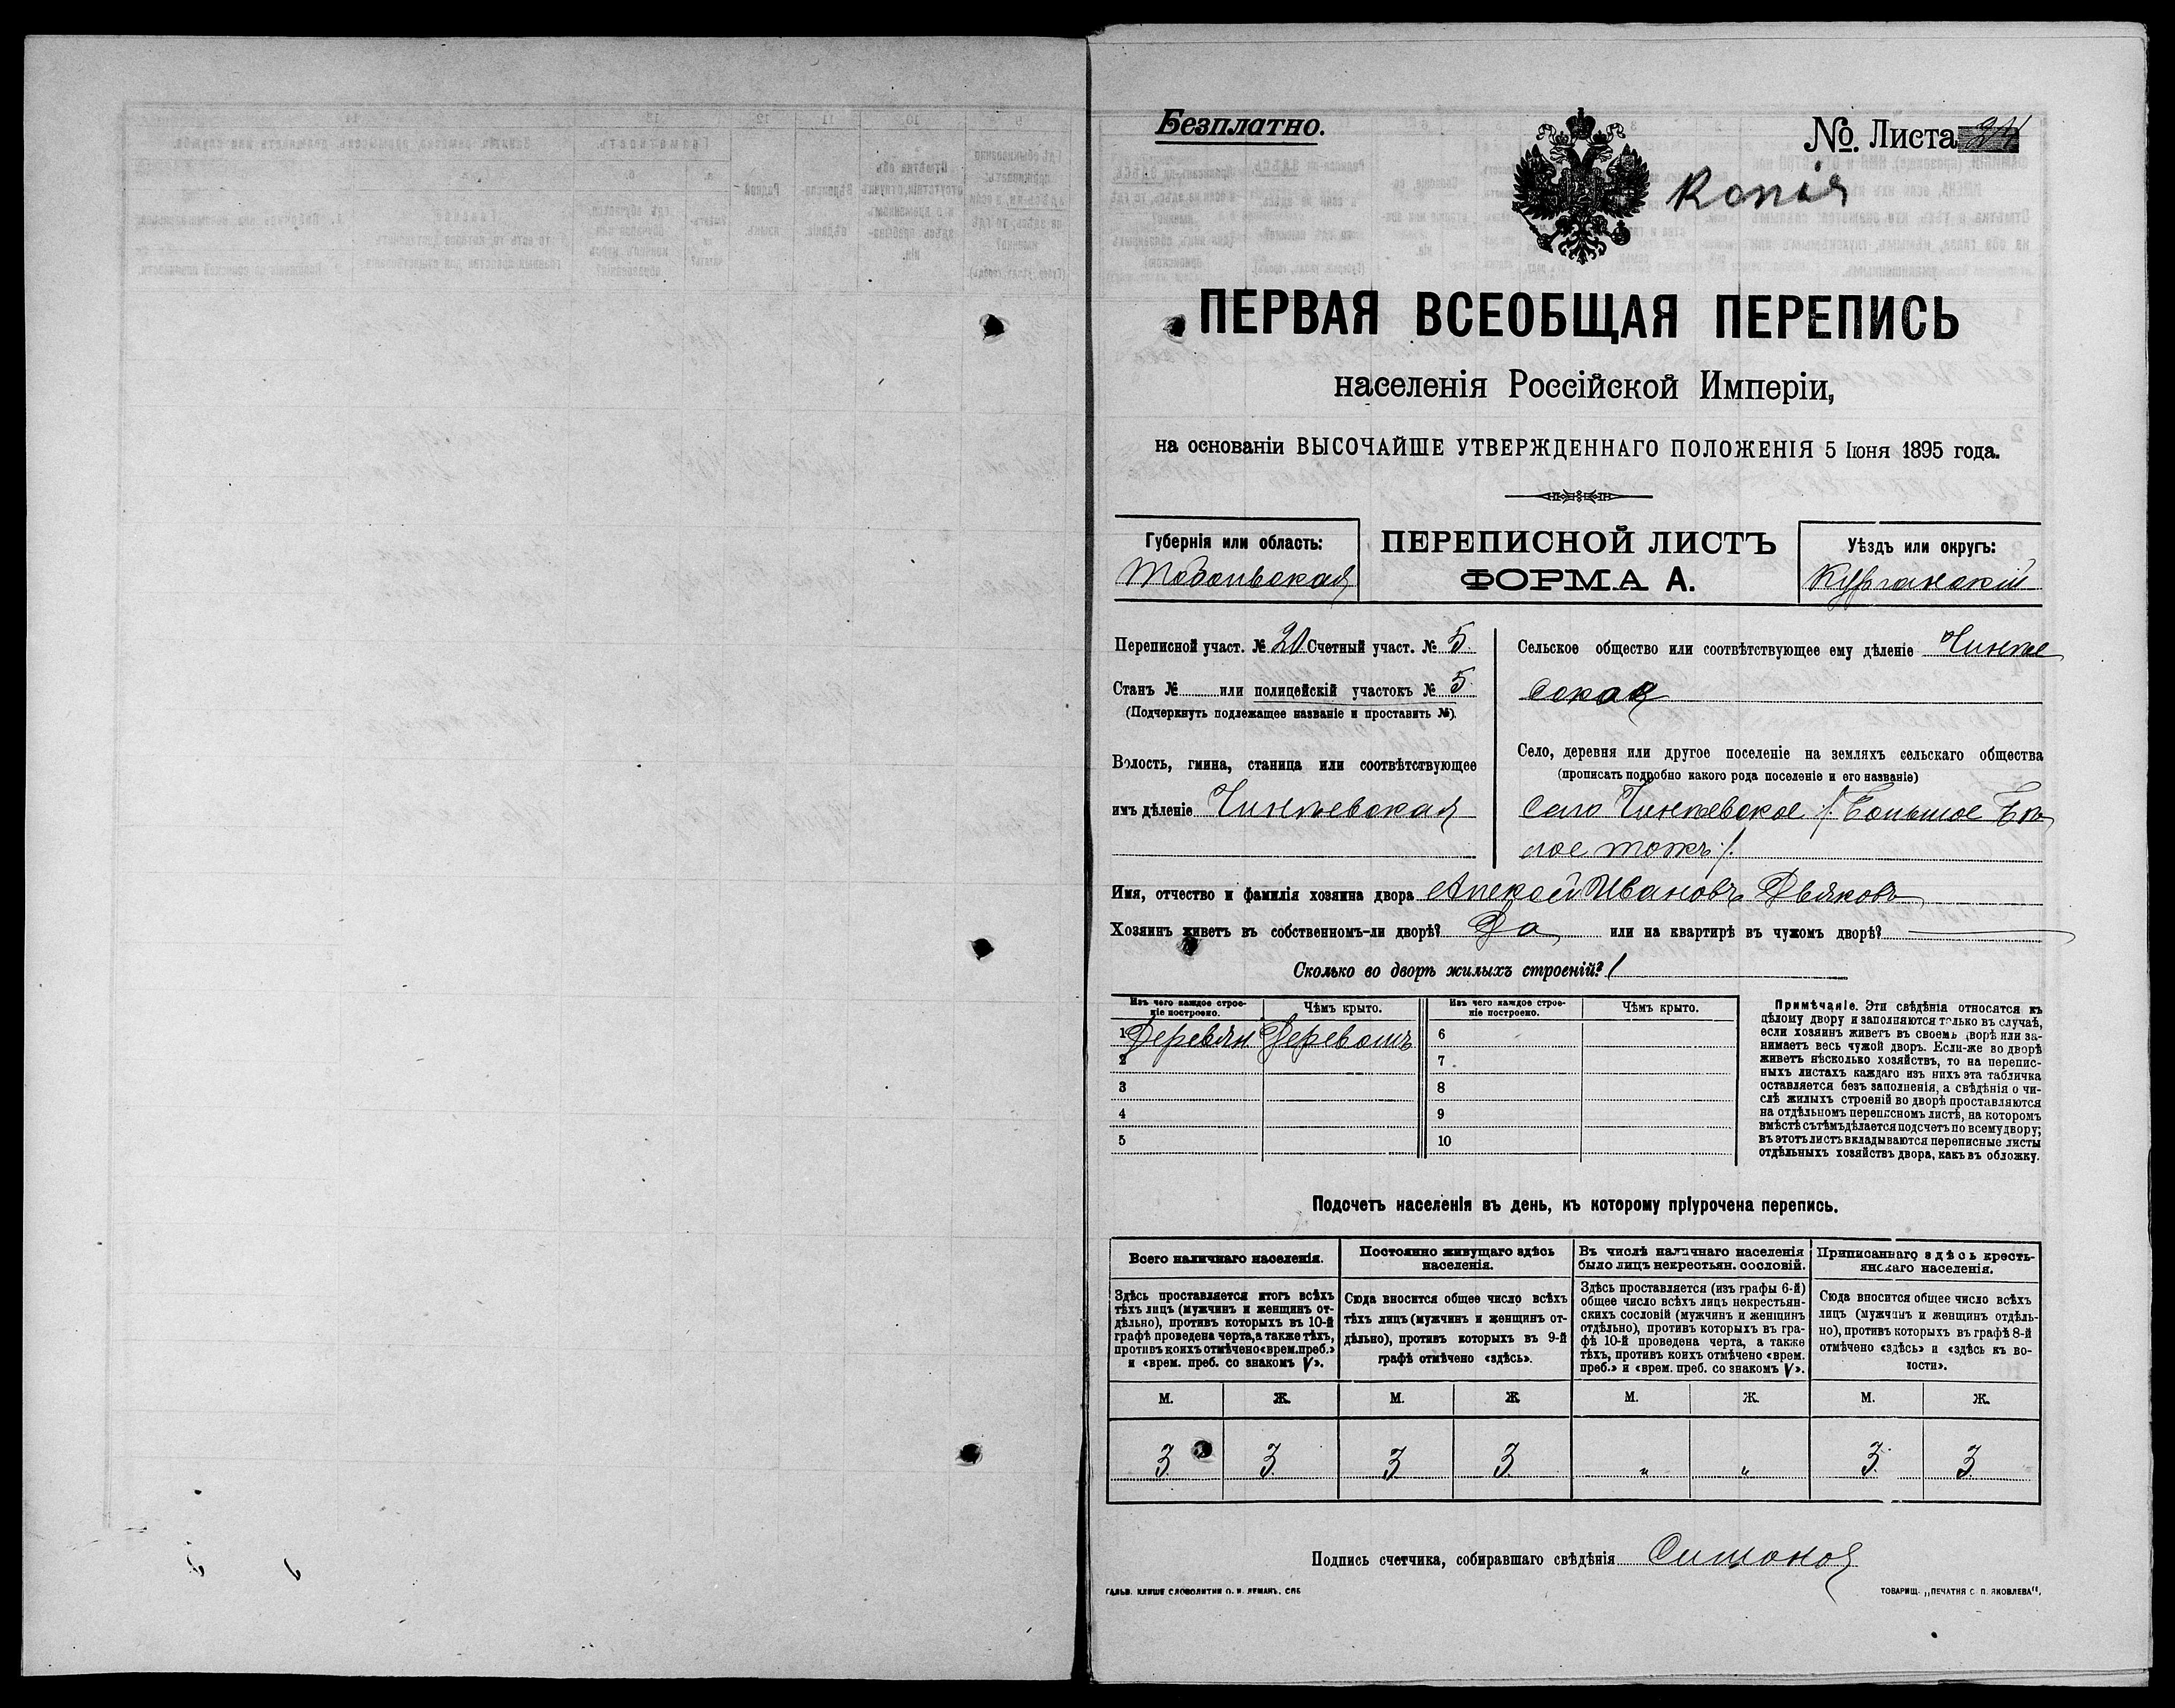 Безплатно.
№. Листа 24
Копія
ПЕРВАЯ ВСЕОБЩАЯ ПЕРЕПИСЬ
населенія Россійской Имперіи,
на основаніи ВЫСОЧАЙШЕ УТВЕРЖДЕННАГО ПОЛОЖЕНІЯ 5 Іюня 1895 года.
Губернія или область:
Тобольская
ПЕРЕПИСНОЙ ЛИСТЪ
ФОРМА А.
Уѣздъ или округъ:
Курганскій
Переписной участ. № 20 Счетный участ. № 5.
Станъ № или полицейскій участокъ № 5.
(Подчеркнуть подлежащее названіе и проставить №).
Волость, гмина, станица или соотвѣтствующее
имъ дѣленіе Чинѣевская
Сельское общество или соотвѣтствующее ему дѣленіе Чинѣе
вская
Село, деревня или другое поселеніе на земляхъ сельскаго общества
(прописать подробно какого рода поселеніе и его названіе)
Село Чинѣевское /: Большое Бѣ
лое тожъ :/.
Имя, отчество и фамилія хозяина двора Алексѣй Ивановъ Дьяковъ
Хозяинъ живетъ въ собственномъ-ли дворѣ? Да или на квартирѣ въ чужомъ дворѣ?
Сколько во дворѣ жилыхъ строеній? 1
Изъ чего каждое строе-
ніе построено.
Чѣмъ крыто.
Изъ чего каждое строе-
ніе построено.
Чѣмъ крыто.
1 Деревян. Деревомъ 6
2 7
3 8
4 9
5 10
Примѣчаніе. Эти свѣдѣнія относятся къ
цѣлому двору и заполняются только въ случаѣ,
если хозяинъ живетъ въ своемъ дворѣ или за-
нимаетъ весь чужой дворъ. Если-же во дворѣ
живетъ нѣсколько хозяйствъ, то на перепис-
ныхъ листахъ каждаго изъ нихъ эта табличка
оставляется безъ заполненія, а свѣдѣнія о чи-
слѣ жилыхъ строеній во дворѣ проставляются
на отдѣльномъ переписномъ листѣ, на которомъ
вмѣстѣ съ тѣмъ дѣлается подсчетъ по всему двору;
въ этотъ листъ вкладываются переписные листы
отдѣльныхъ хозяйствъ двора, какъ въ обложку.
Подсчетъ населенія въ день, къ которому пріурочена перепись.
Всего наличнаго населенія.
Здѣсь проставляется итогъ всѣхъ
тѣхъ лицъ (мужчинъ и женщинъ от-
дѣльно), противъ которыхъ въ 10-й
графѣ проведена черта, а также тѣхъ,
противъ коихъ отмѣчено «врем. преб.»
и «врем. преб. со знакомъ V».
Постоянно живущаго здѣсь
населенія.
Сюда вносится общее число всѣхъ
тѣхъ лицъ (мужчинъ и женщинъ от-
дѣльно), противъ которыхъ въ 9-й
графѣ отмѣчено «здѣсь».
Въ числѣ наличнаго населенія
было лицъ некрестьян. сословій.
Здѣсь проставляется (изъ графы 6-й)
общее число всѣхъ лицъ некрестьян-
скихъ сословій (мужчинъ и женщинъ
отдѣльно), противъ которыхъ въ гра-
фѣ 10-й проведена черта, а также
тѣхъ, противъ коихъ отмѣчено «врем.
преб.» и «врем. преб. со знакомъ V».
Приписаннаго здѣсь кресть-
янскаго населенія.
Сюда вносится общее число всѣхъ
лицъ (мужчинъ и женщинъ отдѣль-
но), противъ которыхъ въ графѣ 8-й
отмѣчено «здѣсь» и «здѣсь къ во-
лости».
М. Ж. М. Ж. М. Ж. М. Ж.
3 3 3 3 „ „ 3 3
Подпись счетчика, собиравшаго свѣдѣнія
ГАЛЬВ. КЛИШЕ СЛОВОЛИТНИ О. И. ЛЕМАНЪ, СПБ
ТОВАРИЩ. „ПЕЧАТНЯ С. П. ЯКОВЛЕВА“.